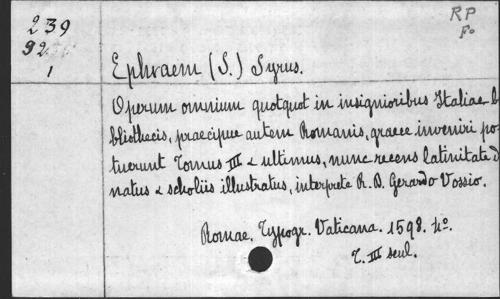 239
RP
Fo
92
1
Ephraem (S.) Syrus.
Operum omnium quotquot in insignioribus Italiae b
bliothecis, praecipue autem Romanis, graece inveniri po
tuerunt Tomus III & ultimus, nunc recens latinitate d
natus & scholiis illustratus, interprete R. D. Gerardo Vossio.
Romae. Typogr. Vaticana. 1598. 4o.
T. III seul.